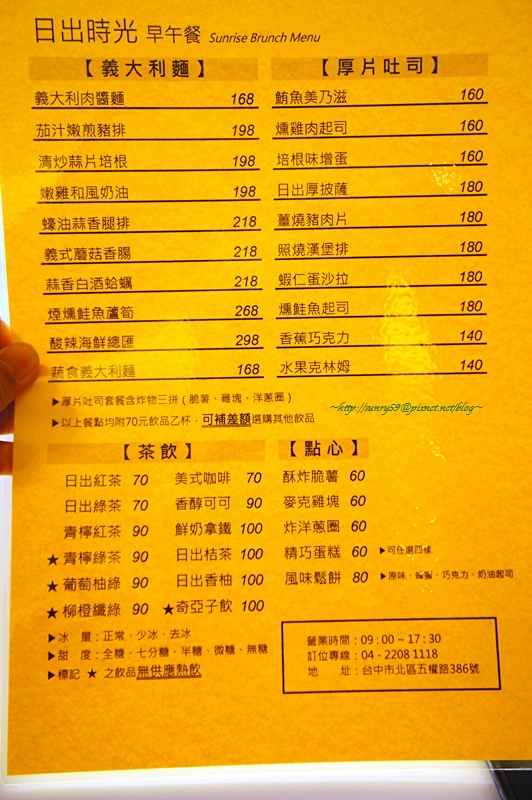 日出時光 早午餐 Sunrise Brunch Menu
【義大利麵】
義大利肉醬麵 168
茄汁嫩煎豬排 198
清炒蒜片培根 198
嫩雞和風奶油 198
蠔油蒜香腿排 218
義式蘑菇香腸 218
蒜香白酒蛤蠣 218
煙燻鮭魚蘆筍 268
酸辣海鮮總匯 298
蔬食義大利麵 168
【厚片吐司】
鮪魚美乃滋 160
燻雞肉起司 160
培根味增蛋 160
日出厚披薩 180
薑燒豬肉片 180
照燒漢堡排 180
蝦仁蛋沙拉 180
燻鮭魚起司 180
香蕉巧克力 140
水果克林姆 140
▶厚片吐司套餐含炸物三拼(脆薯、雞塊、洋蔥圈)
▶以上餐點均附70元飲品乙杯，可補差額選購其他飲品
~http://sunry59@pixnet.net/blog~
【茶飲】
日出紅茶 70
日出綠茶 70
青檸紅茶 90
★青檸綠茶 90
★葡萄柚綠 90
★柳橙纖綠 90
美式咖啡 70
香醇可可 90
鮮奶拿鐵 100
日出桔茶 100
日出香柚 100
★奇亞子飲 100
▶冰 量：正常、少冰、去冰
▶甜 度：全糖、七分糖、半糖、微糖、無糖
▶標記 ★ 之飲品無供應熱飲
【點心】
酥炸脆薯 60
麥克雞塊 60
炸洋蔥圈 60
精巧蛋糕 60 ▶可任選四樣
風味鬆餅 80 ▶原味、蜂蜜、巧克力、奶油起司
營業時間：09：00 ~ 17：30
訂位專線：04 - 2208 1118
地 址：台中市北區五權路386號